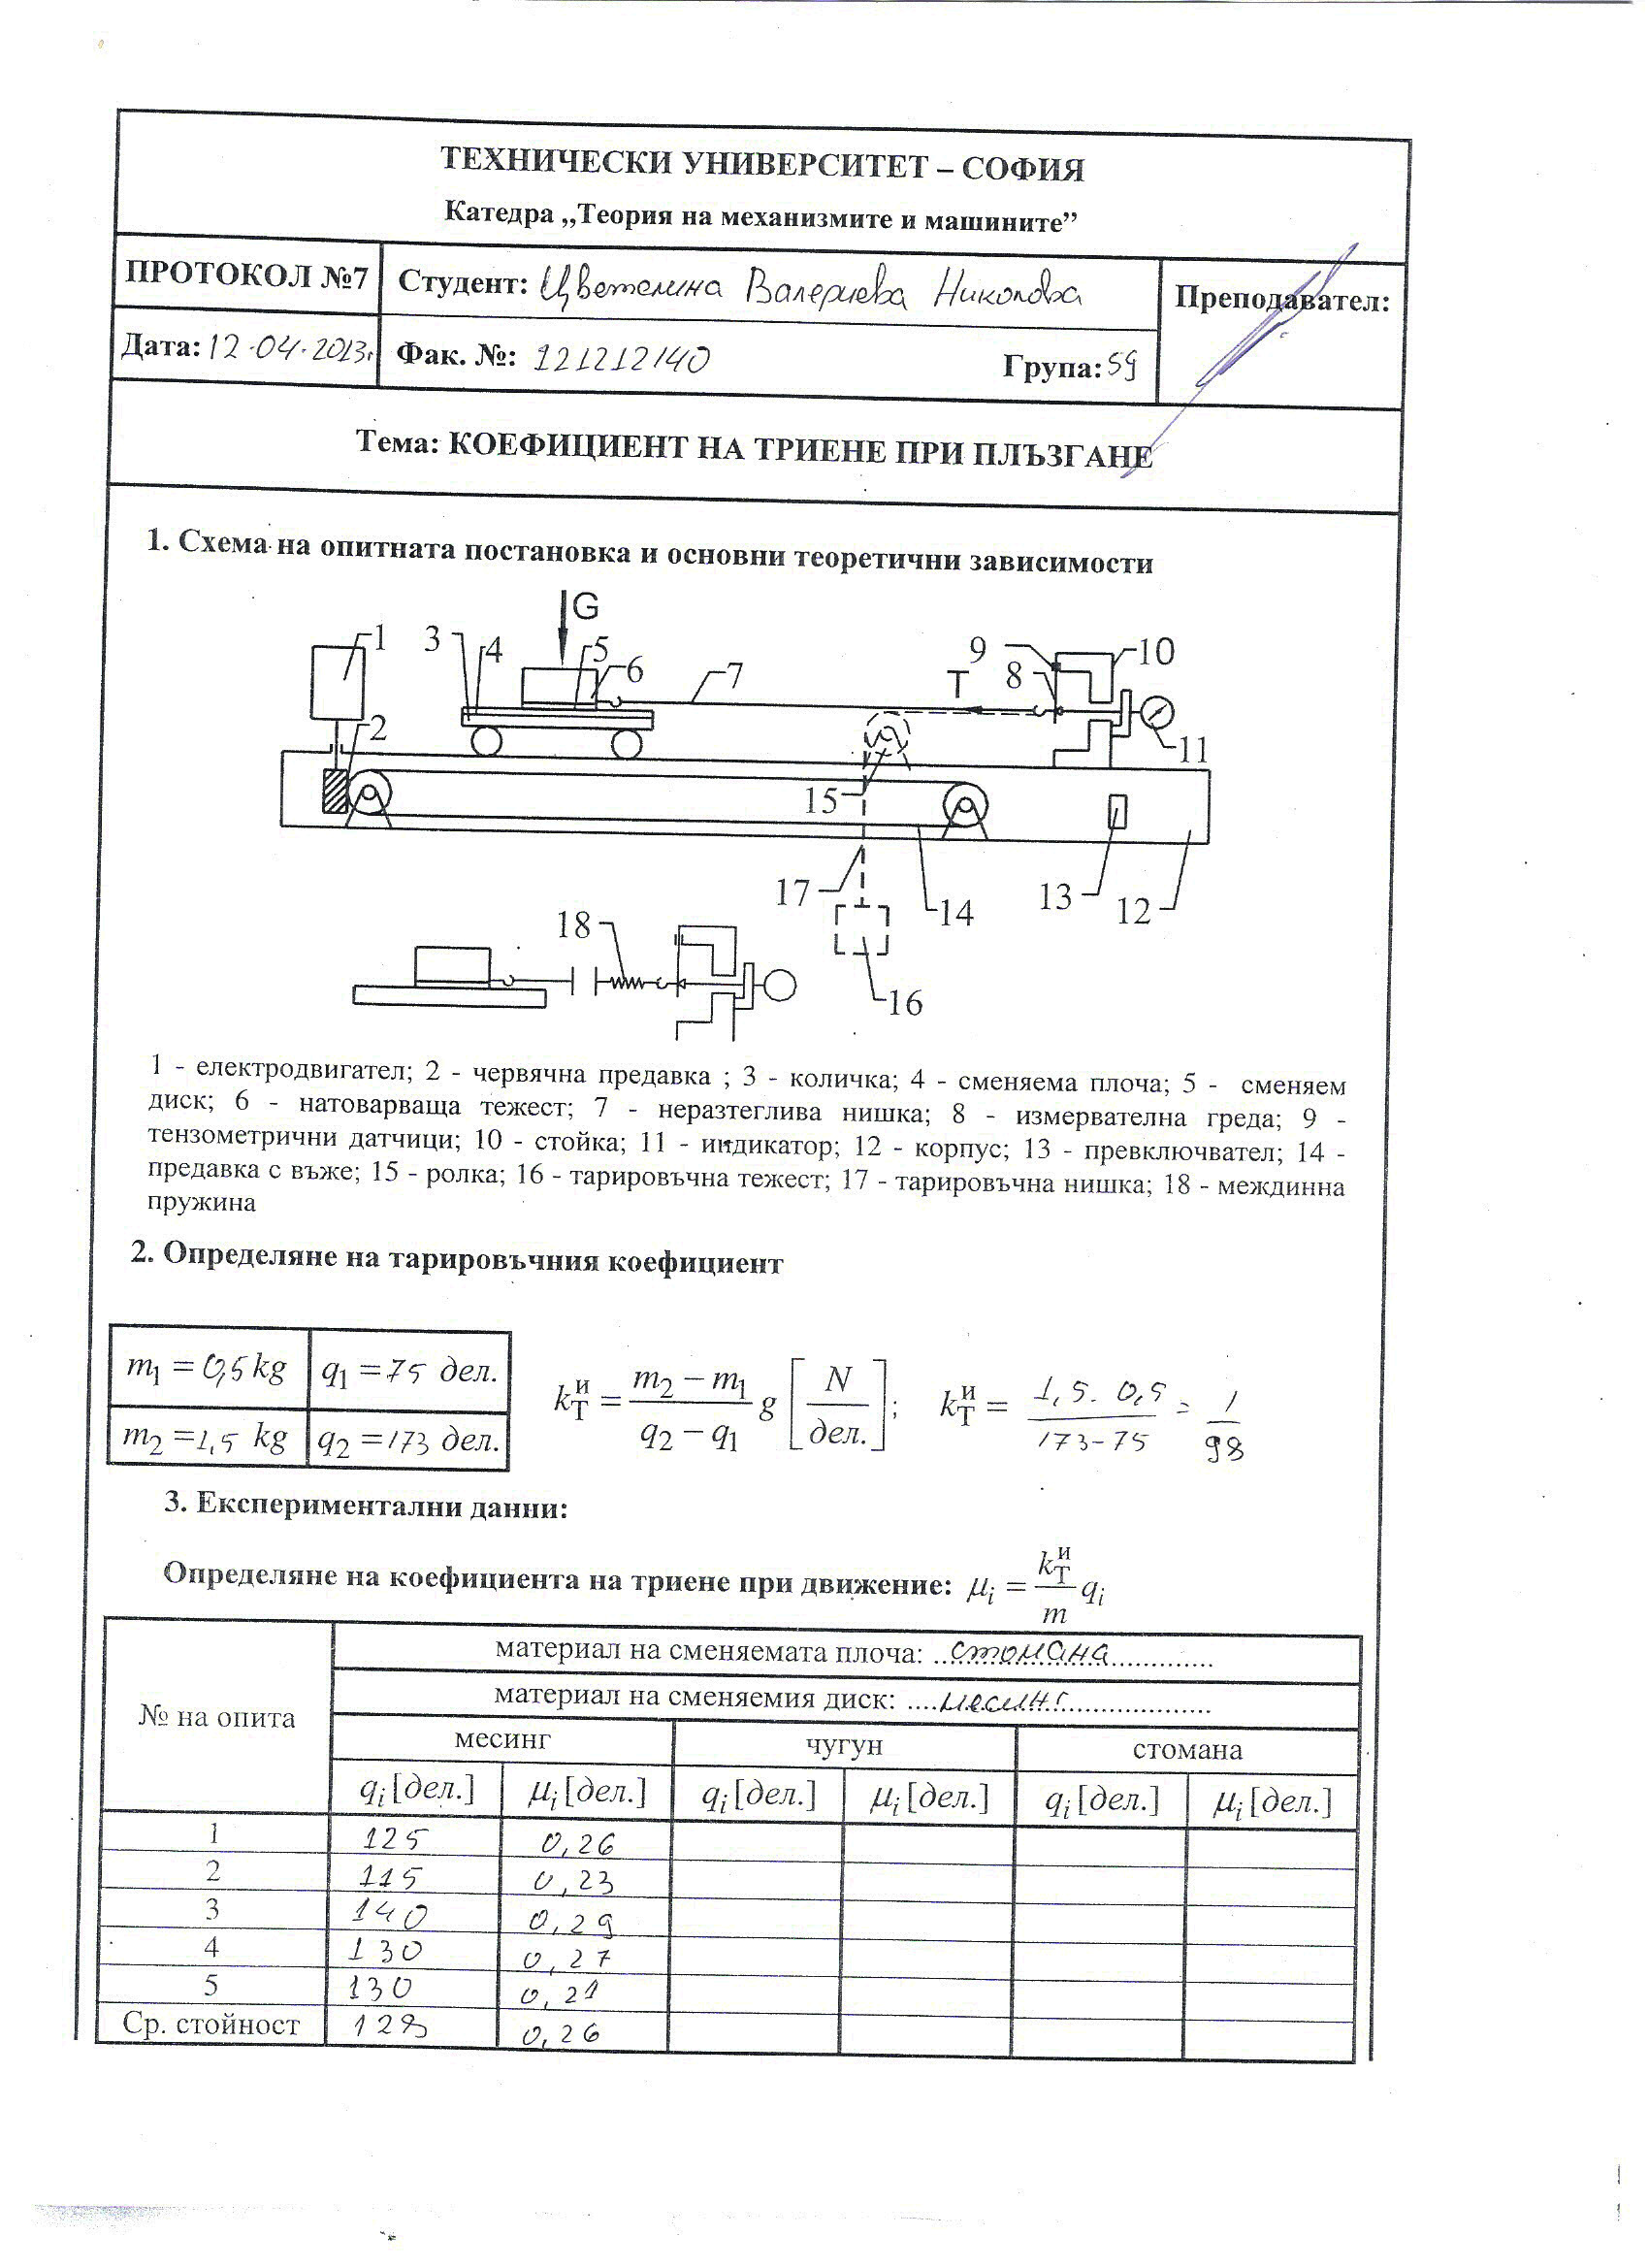 ТЕХНИЧЕСКИ УНИВЕРСИТЕТ – СОФИЯ
Катедра „Теория на механизмите и машините”
ПРОТОКОЛ №7
Студент: Цветелина Валериева Николова
Преподавател:
Дата: 12.04.2013г
Фак. №: 121212140
Група: 59
Тема: КОЕФИЦИЕНТ НА ТРИЕНЕ ПРИ ПЛЪЗГАНЕ
1. Схема на опитната постановка и основни теоретични зависимости
G
1 3 4 5 6 7 T 9 8 10
2 15 11
17 14 13 12
18 16
1 - електродвигател; 2 - червячна предавка ; 3 - количка; 4 - сменяема плоча; 5 - сменяем
диск; 6 - натоварваща тежест; 7 - неразтеглива нишка; 8 - измервателна греда; 9 -
тензометрични датчици; 10 - стойка; 11 - индикатор; 12 - корпус; 13 - превключвател; 14 -
предавка с въже; 15 - ролка; 16 - тарировъчна тежест; 17 - тарировъчна нишка; 18 - междинна
пружина
2. Определяне на тарировъчния коефициент
m1 = 0,5 kg q1 = 75 дел.
m2 = 1,5 kg q2 = 173 дел.
kТи = (m2 – m1)/(q2 – q1) g [N/дел.]; kТи = (1,5 - 0,5)/(173-75) = 1/98
3. Експериментални данни:
Определяне на коефициента на триене при движение: μi = kТи/m qi
№ на опита
материал на сменяемата плоча: ..стомана.............
материал на сменяемия диск: ....месинг..................
месинг чугун стомана
qi [дел.] μi [дел.] qi [дел.] μi [дел.] qi [дел.] μi [дел.]
1 125 0,26
2 115 0,23
3 140 0,29
4 130 0,27
5 130 0,21
Ср. стойност 0,26